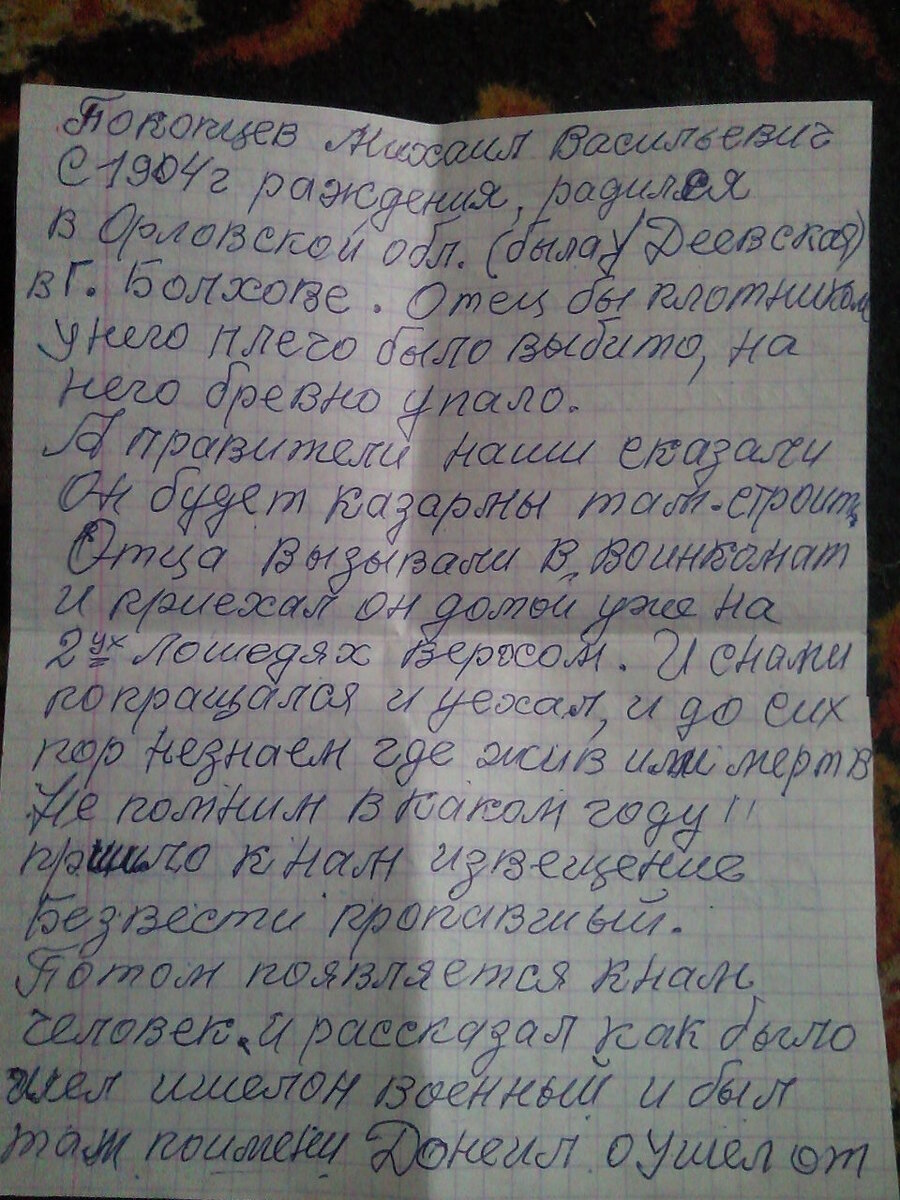 Покопцев Михаил Васильевич
С 1904г раждения, радился
в Орловской обл. (была) Деевская)
в г. Болхове. Отец бы плотником
у него плечо было выбито, на
него бревно упало.
А правители наши сказали
Он будет казармы там строить
Отца вызывали в воинкомат
и приехал он домой уже на
2ух лошедях верхом. И снами
попращался и уехал, и до сих
пор незнаем где жив или мертв
Не помним в каком году!!
пришло к нам извещение
Безвести пропавший.
Потом появляется к нам
человек. и рассказал как было
шел ишелон военный и был
там поимени Донеил о ушел от